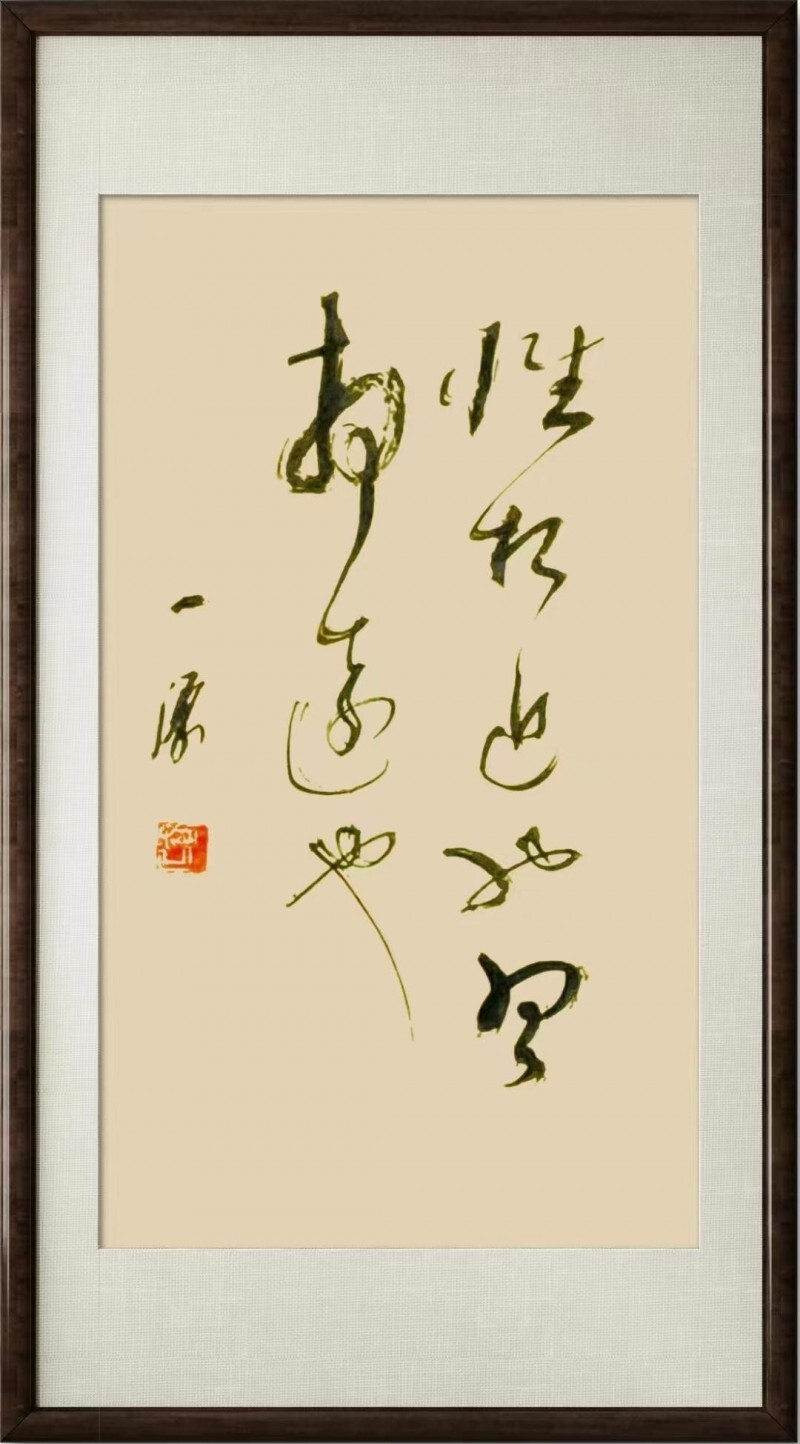 性相近也習
相遠也
一